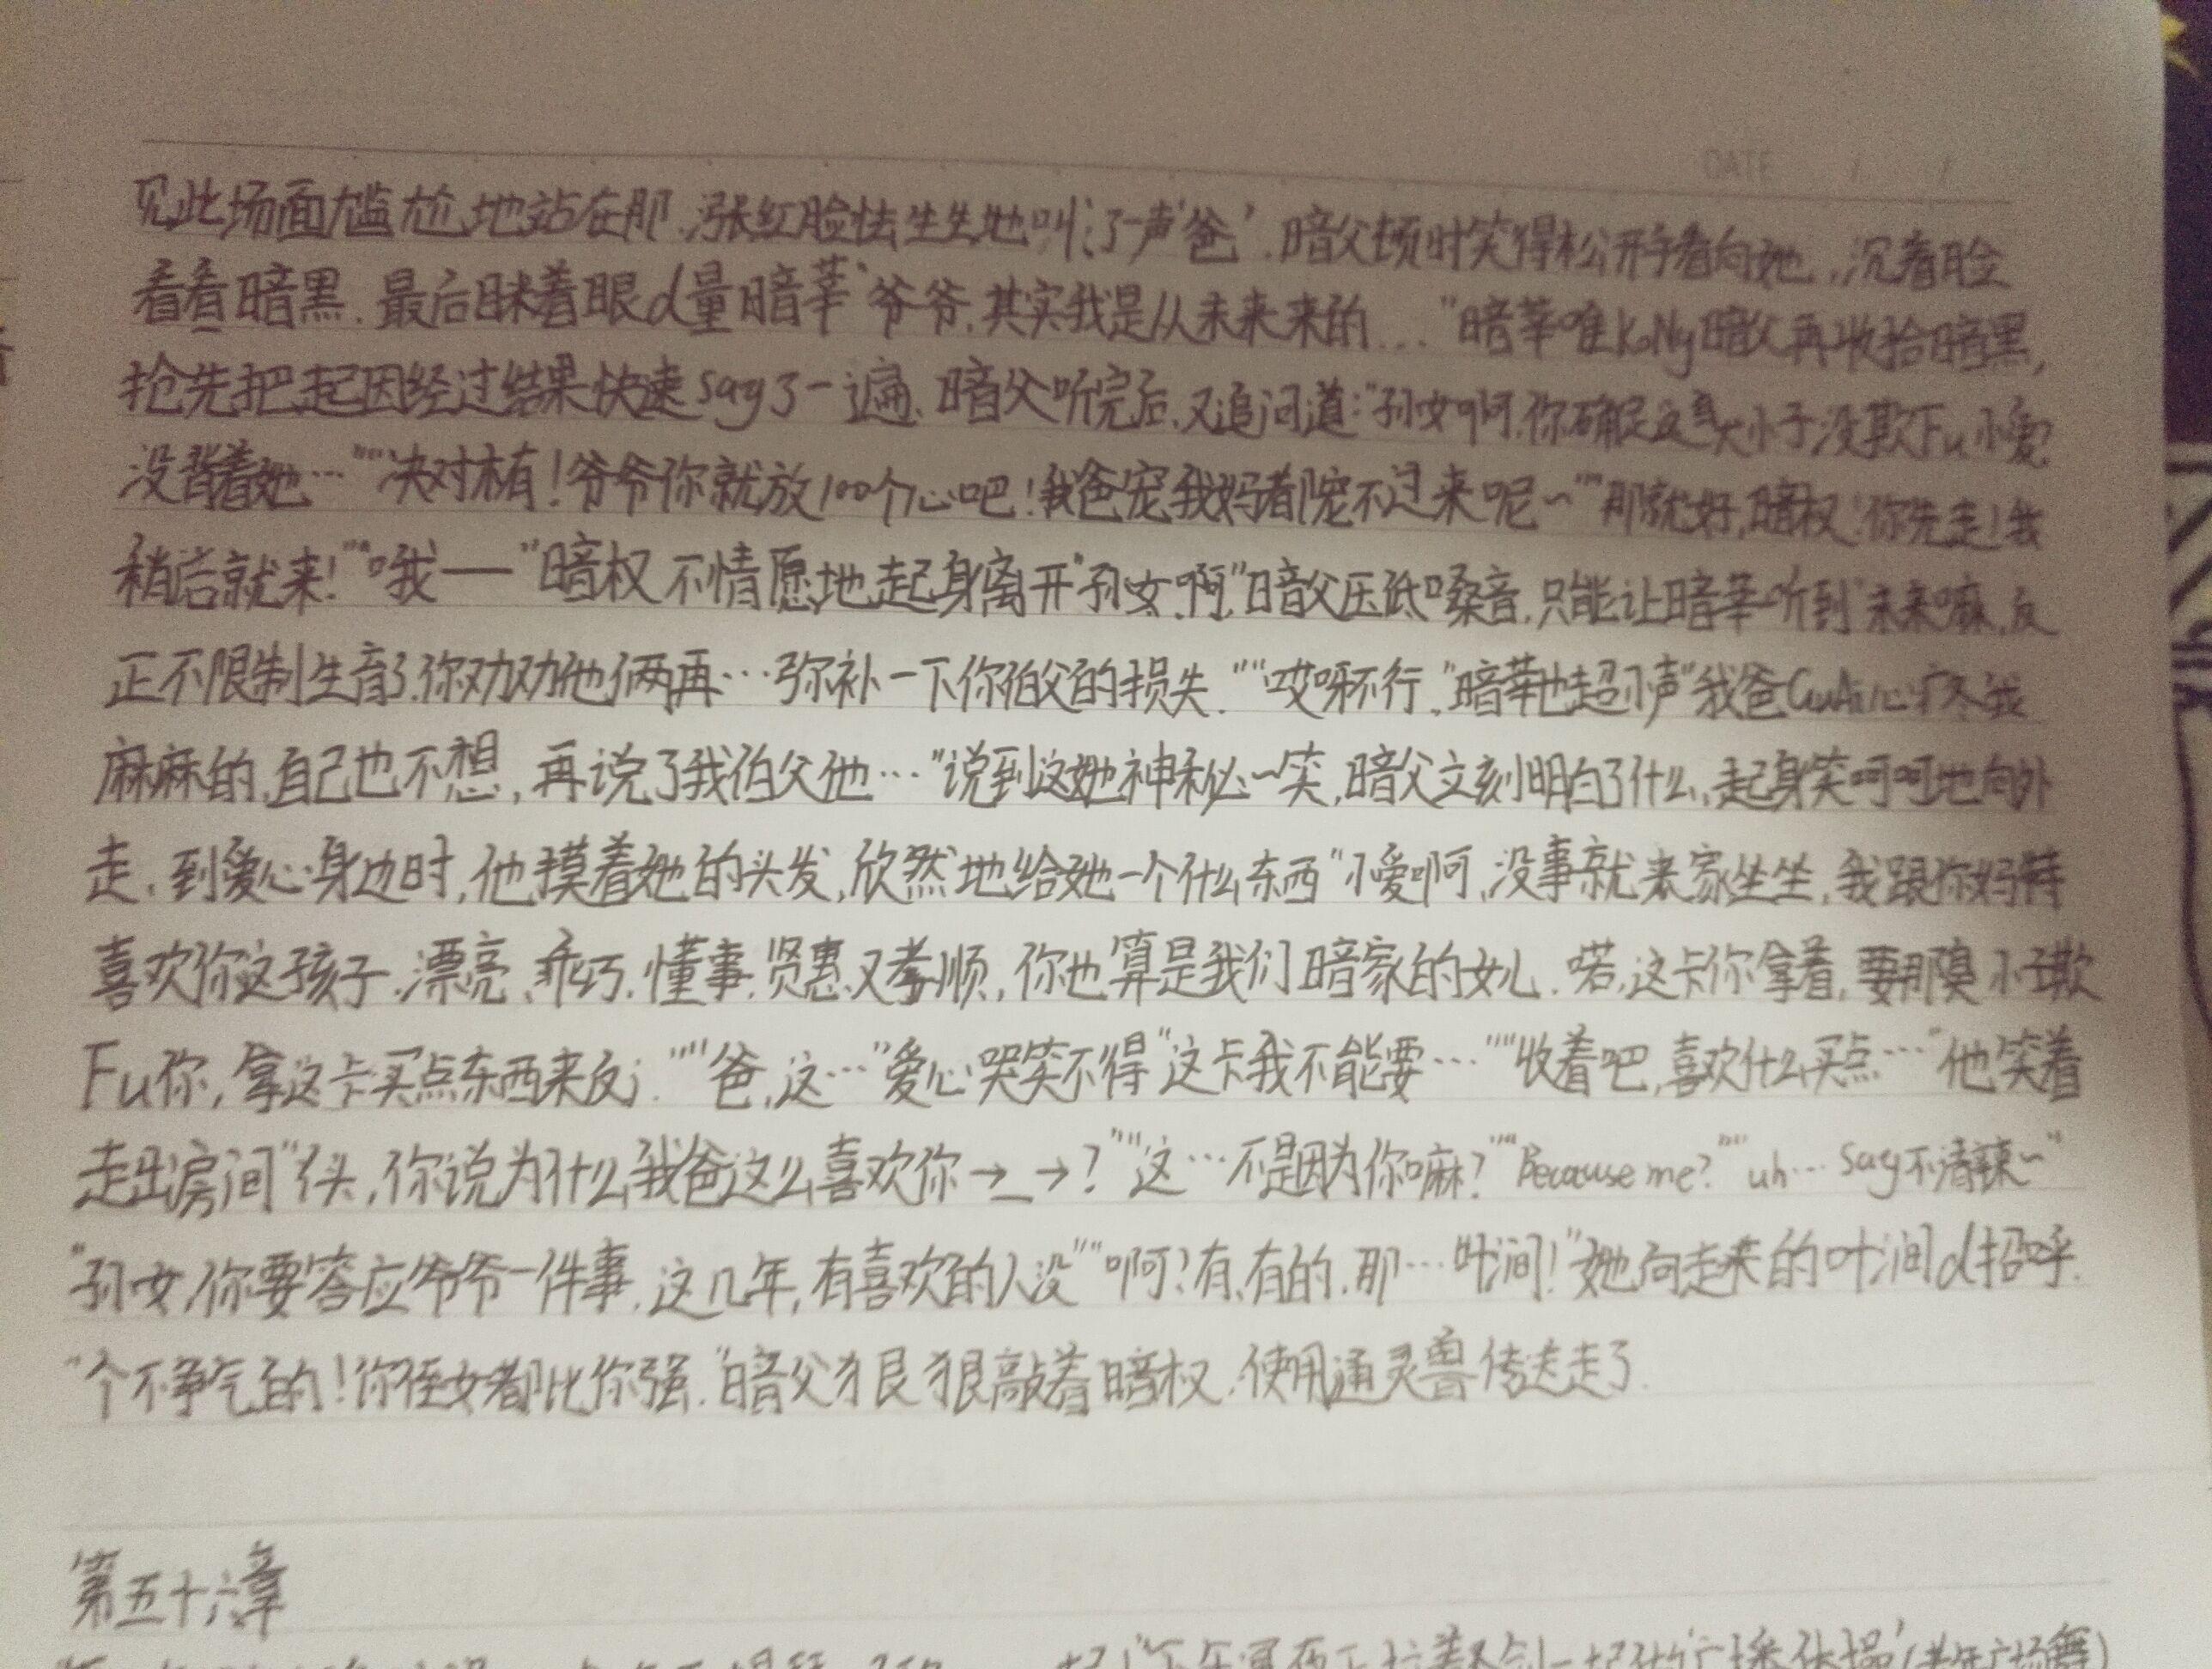 见此场面尴尬地站在那,涨红脸怯生生地叫了一声"爸".暗父顿时笑得松开手看向她,沉着脸
看看暗黑.最后眯着眼d量暗莘"爷爷,其实我是从未来来的…"暗莘唯KoNg暗父再收拾暗黑,
抢先把起因经过结果快速say了一遍.暗父听完后,又追问道:"孙女啊,你确定这臭小子没欺Fu小爱
没背着她…""决对木有!爷爷你就放100个心吧!我爸宠我妈都宠不过来呢~""那就好,暗权!你先走!我
稍后就来!""哦——"暗权不情愿地起身离开"孙女啊,"暗父压低嗓音,只能让暗莘听到"未来嘛,反
正不限制生育了.你劝劝他俩再…弥补一下你伯父的损失.""哎呀不行,"暗莘也超小声"我爸 心疼我
麻麻的,自己也不想,再说了我伯父他…"说到这她神秘一笑,暗父立刻明白了什么,起身笑呵呵地向外
走,到爱心身边时,他摸着她的头发,欣然地给她一个什么东西"小爱啊,没事就来家坐坐,我跟你妈特
喜欢你这孩子.漂亮、乖巧、懂事、贤惠又孝顺,你也算是我们暗家的女儿.喏,这卡你拿着,要那臭小子欺
Fu你,拿这卡买点东西来反.""爸,这…"爱心哭笑不得"这卡我不能要…""收着吧,喜欢什么买点…"他笑着
走出房间"丫头,你说为什么我爸这么喜欢你→_→?""这…不是因为你嘛?""Because me?""uh…say不清辣~"
"孙女,你要答应爷爷一件事,这几年,有喜欢的人没""啊?有,有的,那…叶涧!"她向走来的叶涧d招呼.
"个不争气的!你侄女都比你强."暗父狠狠敲着暗权,使用通灵兽传送走了.
第五十六章